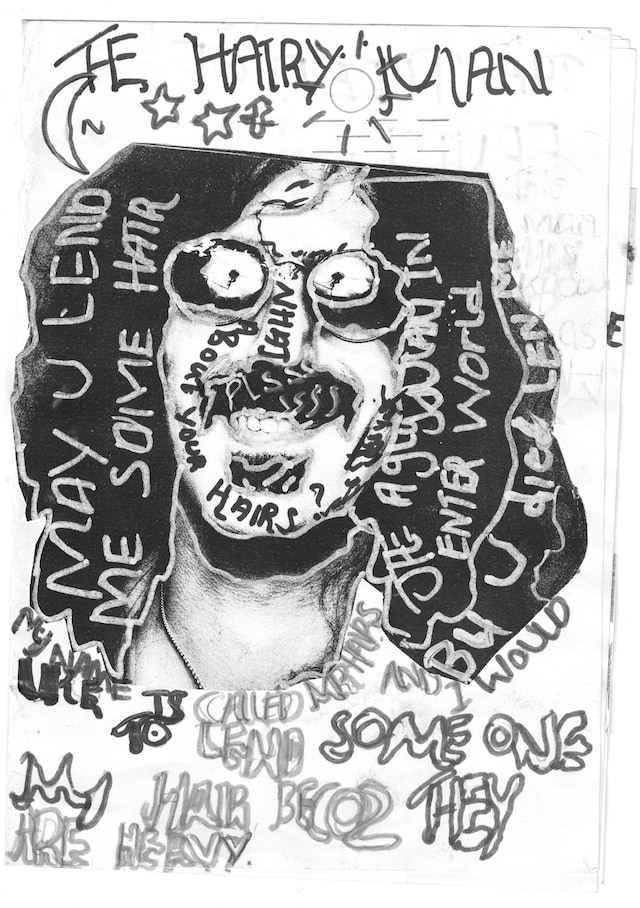 TE HAIRY MAN
MAY U LEND
ME SOME HAIR
ABOUT YOUR
HAIRS?
PLS
IN
ENTER WORLD
BU U died LEN ME
E
MY NAME IS CALLED MR HAIRS AND I WOULD
LIKE TO LEND SOME ONE
MY HAIR BECOZ THEY
ARE HEAVY.